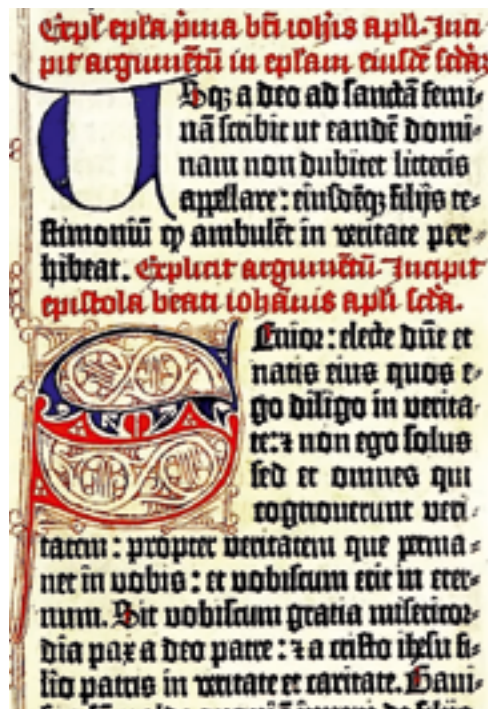 Expl' epl'a p̄ma bt̄i ioh̄is apl'i. Inci-
pit argumētū in epl'am eiusdē scda;
Usqꝫ adeo ad sanctā femi-
nā scribit ut eandē domi-
nam non dubitet litteris
appellare: eiusdēqꝫ filijs te-
stimoniū ꝙ ambulēt in veritate per-
hibeat. Explicit argumētū. Incipit
epistola beati iohānis apl'i scda.
Senior: electe dn̄e et
natis eius quos e-
go diligo in verita-
te: ⁊ non ego solus
sed et omnes qui
cognouerunt veri-
tatem: propter veritatem que perma-
net in vobis: et vobiscum erit in eter-
num. Sit vobiscum gratia misericor-
dia pax a deo patre: ⁊ a cristo ihesu fi-
lio patris in veritate et caritate. Gaui-